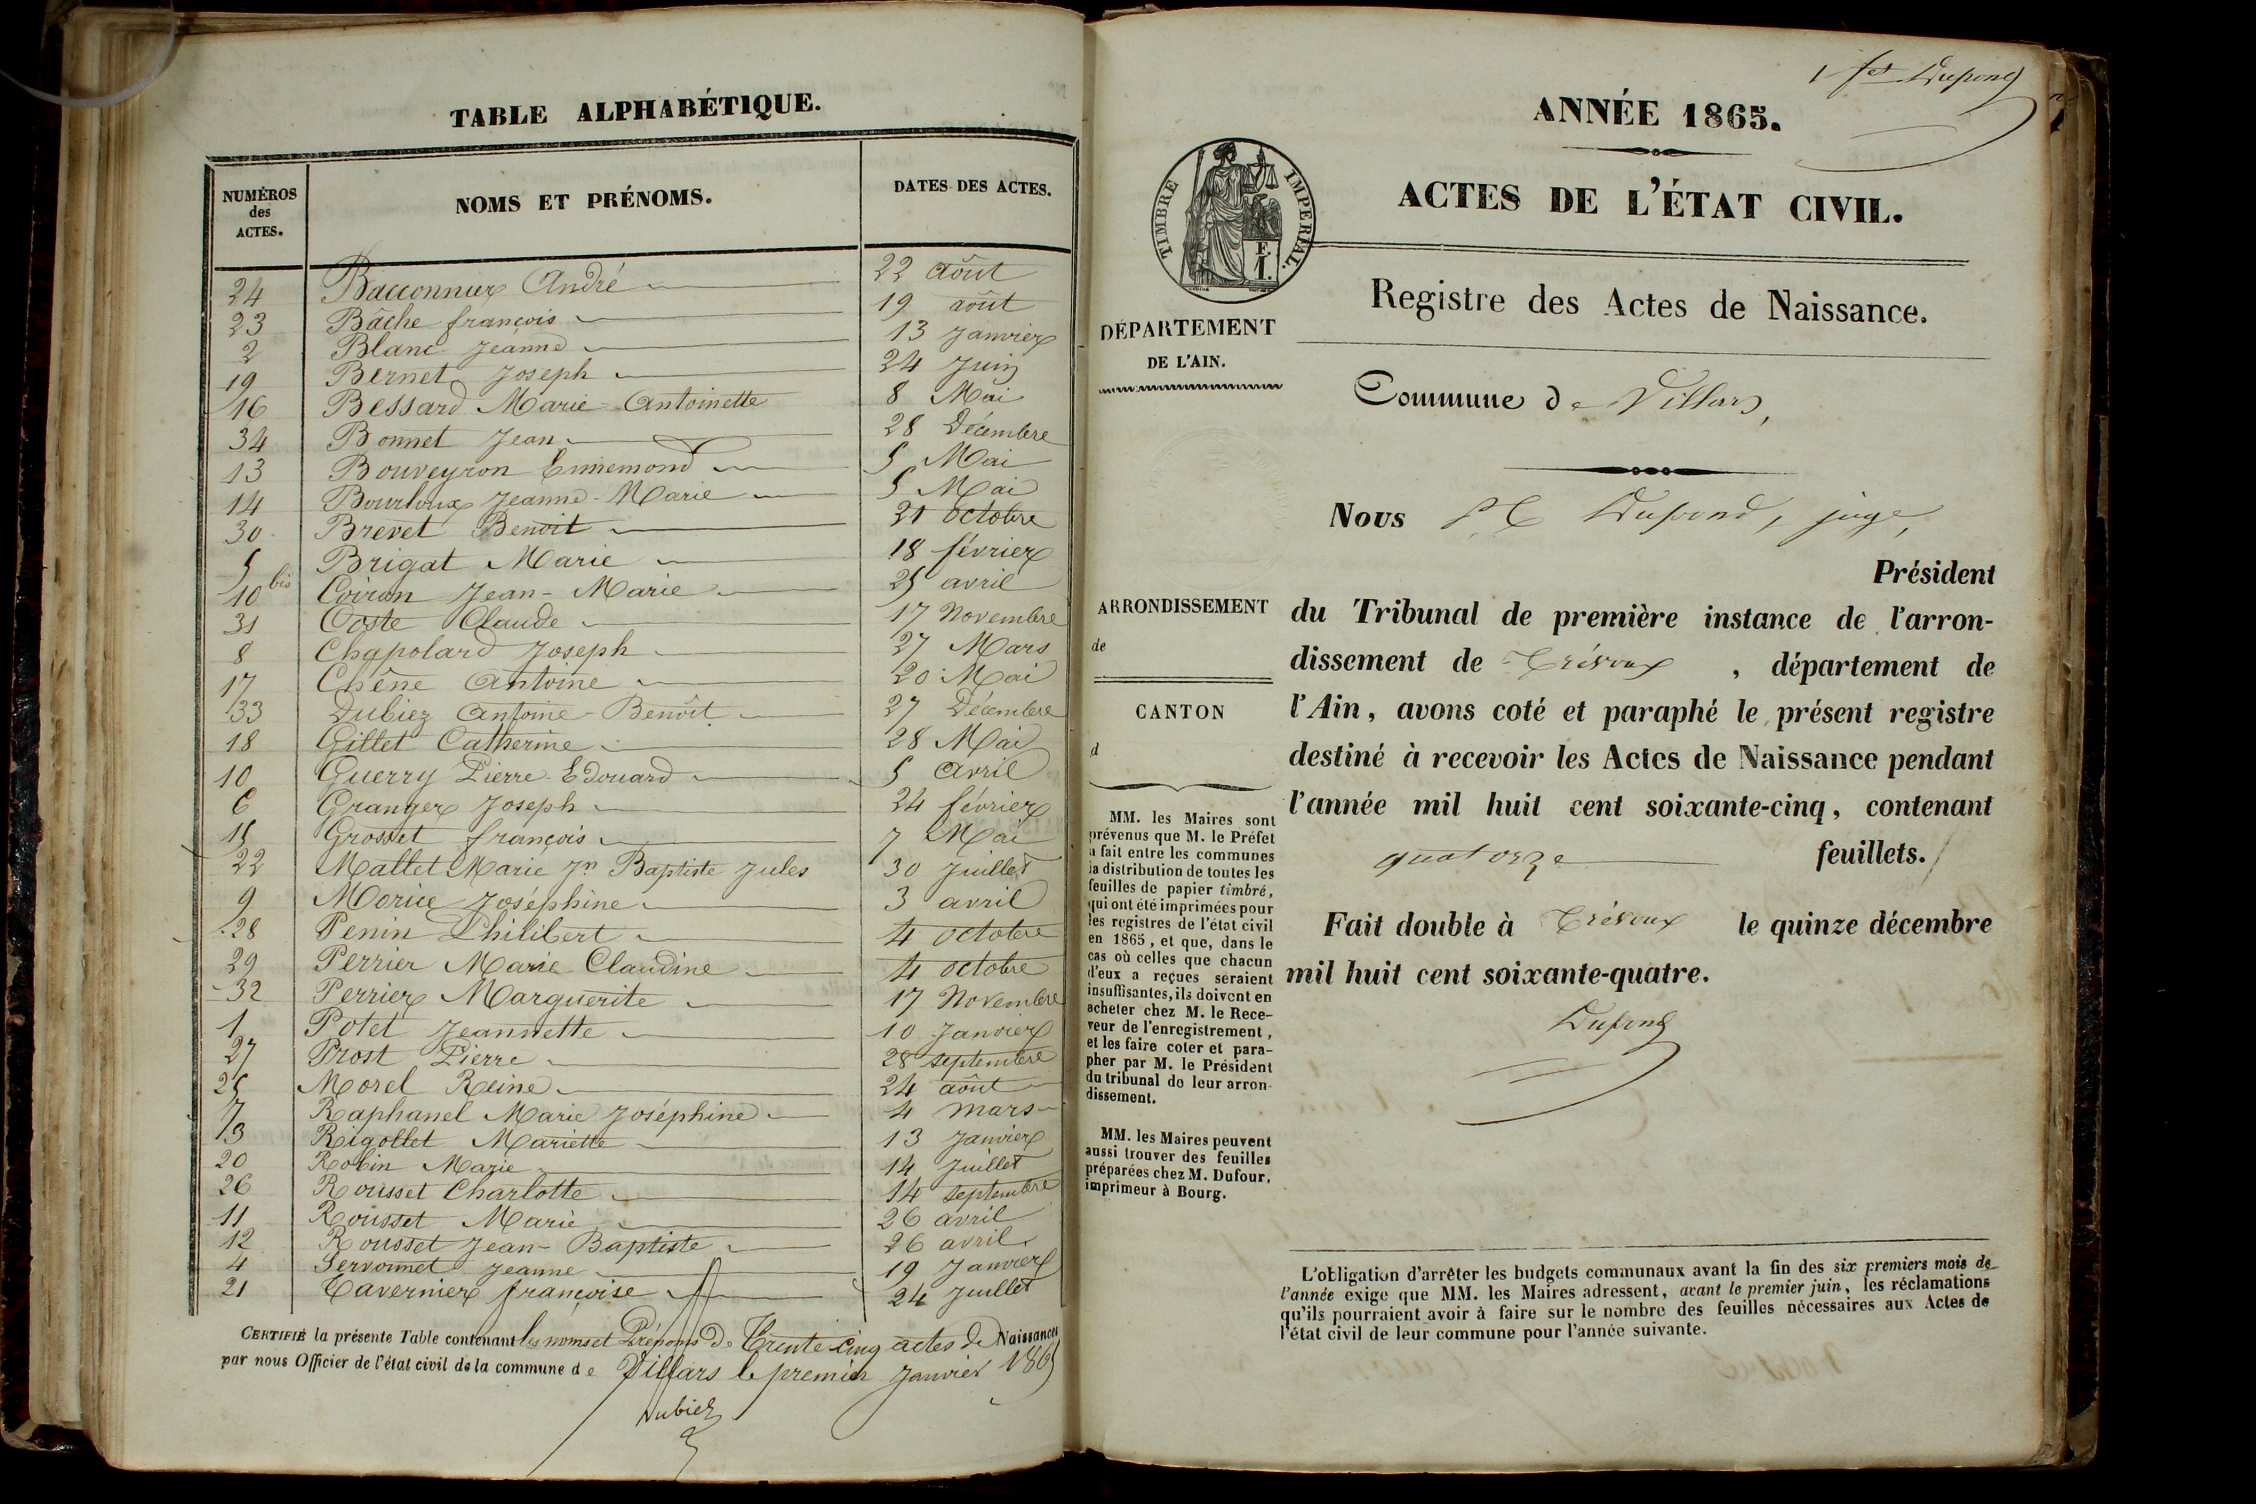 TABLE ALPHABÉTIQUE.
NUMÉROS des ACTES. NOMS ET PRÉNOMS. DATES DES ACTES.
24 Bacconnier André 22 août
23 Bâche françois 19 août
2 Blanc Jeanne 13 Janvier
19 Bernet Joseph 24 Juin
16 Bessard Marie Antoinette 8 Mai
34 Bonnet Jean 28 Décembre
13 Bouveyron Ennemond 5 Mai
14 Bourloux Jeanne-Marie 5 Mai
30 Brevet Benoit 21 octobre
5 Brigat Marie 18 février
10 bis Coiron Jean-Marie 25 avril
31 Coste Claude 17 Novembre
8 Chapolard Joseph 27 Mars
17 Chêne Antoine 20 Mai
33 Dubiez Antoine-Benoît 27 Décembre
18 Gillet Catherine 28 Mai
10 Guerry Pierre-Edouard 5 Avril
6 Granger Joseph 24 février
15 Grosset françois 7 Mai
22 Mallet Marie Jn Baptiste Jules 30 Juillet
9 Morice Joséphine 3 avril
28 Penin Philibert 4 octobre
29 Perrier Marie Claudine 4 octobre
32 Perrier Marguerite 17 Novembre
1 Potet Jeannette 10 Janvier
27 Prost Pierre 28 septembre
25 Morel Reine 24 août
7 Raphanel Marie Joséphine 4 mars
3 Rigollet Mariette 13 Janvier
20 Robin Marie 14 Juillet
26 Rousset Charlotte 14 septembre
11 Rousset Marie 26 avril
12 Rousset Jean-Baptiste 26 avril
4 Servonnet Jeanne 19 Janvier
21 Tavernier françoise 24 Juillet
CERTIFIÉ la présente Table contenant les noms et Prénoms de Trente cinq actes de Naissances
par nous Officier de l'état civil de la commune de Villars le premier Janvier 1865
Dubiez
1 fet Dupond
ANNÉE 1865.
ACTES DE L'ÉTAT CIVIL.
TIMBRE IMPÉRIAL.
Registre des Actes de Naissance.
DÉPARTEMENT
DE L'AIN.
Commune de Villars,
Nous Dupond, juge,
Président
ARRONDISSEMENT
de
du Tribunal de première instance de l'arron-
dissement de Trévoux, département de
l'Ain, avons coté et paraphé le présent registre
destiné à recevoir les Actes de Naissance pendant
l'année mil huit cent soixante-cinq, contenant
quatorze feuillets.
Fait double à Trévoux le quinze décembre
mil huit cent soixante-quatre.
Dupond
CANTON
d
MM. les Maires sont
prévenus que M. le Préfet
a fait entre les communes
la distribution de toutes les
feuilles de papier timbré,
qui ont été imprimées pour
les registres de l'état civil
en 1865, et que, dans le
cas où celles que chacun
d'eux a reçues seraient
insuffisantes, ils doivent en
acheter chez M. le Rece-
veur de l'enregistrement,
et les faire coter et para-
pher par M. le Président
du tribunal de leur arron-
dissement.
MM. les Maires peuvent
aussi trouver des feuilles
préparées chez M. Dufour,
imprimeur à Bourg.
L'obligation d'arrêter les budgets communaux avant la fin des six premiers mois de
l'année exige que MM. les Maires adressent, avant le premier juin, les réclamations
qu'ils pourraient avoir à faire sur le nombre des feuilles nécessaires aux Actes de
l'état civil de leur commune pour l'année suivante.